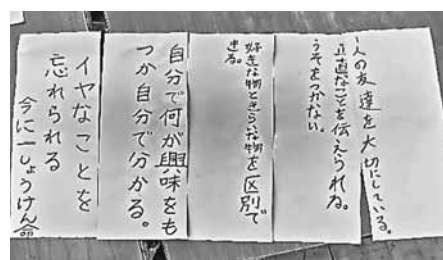 一人の友達を大切にしている。
正直なことを伝えられる。
うそをつかない。
好きな物ときらいな物を区別で
きる。
自分で何が興味をも
つか自分で分かる。
イヤなことを
忘れられる
今に一しょうけん命